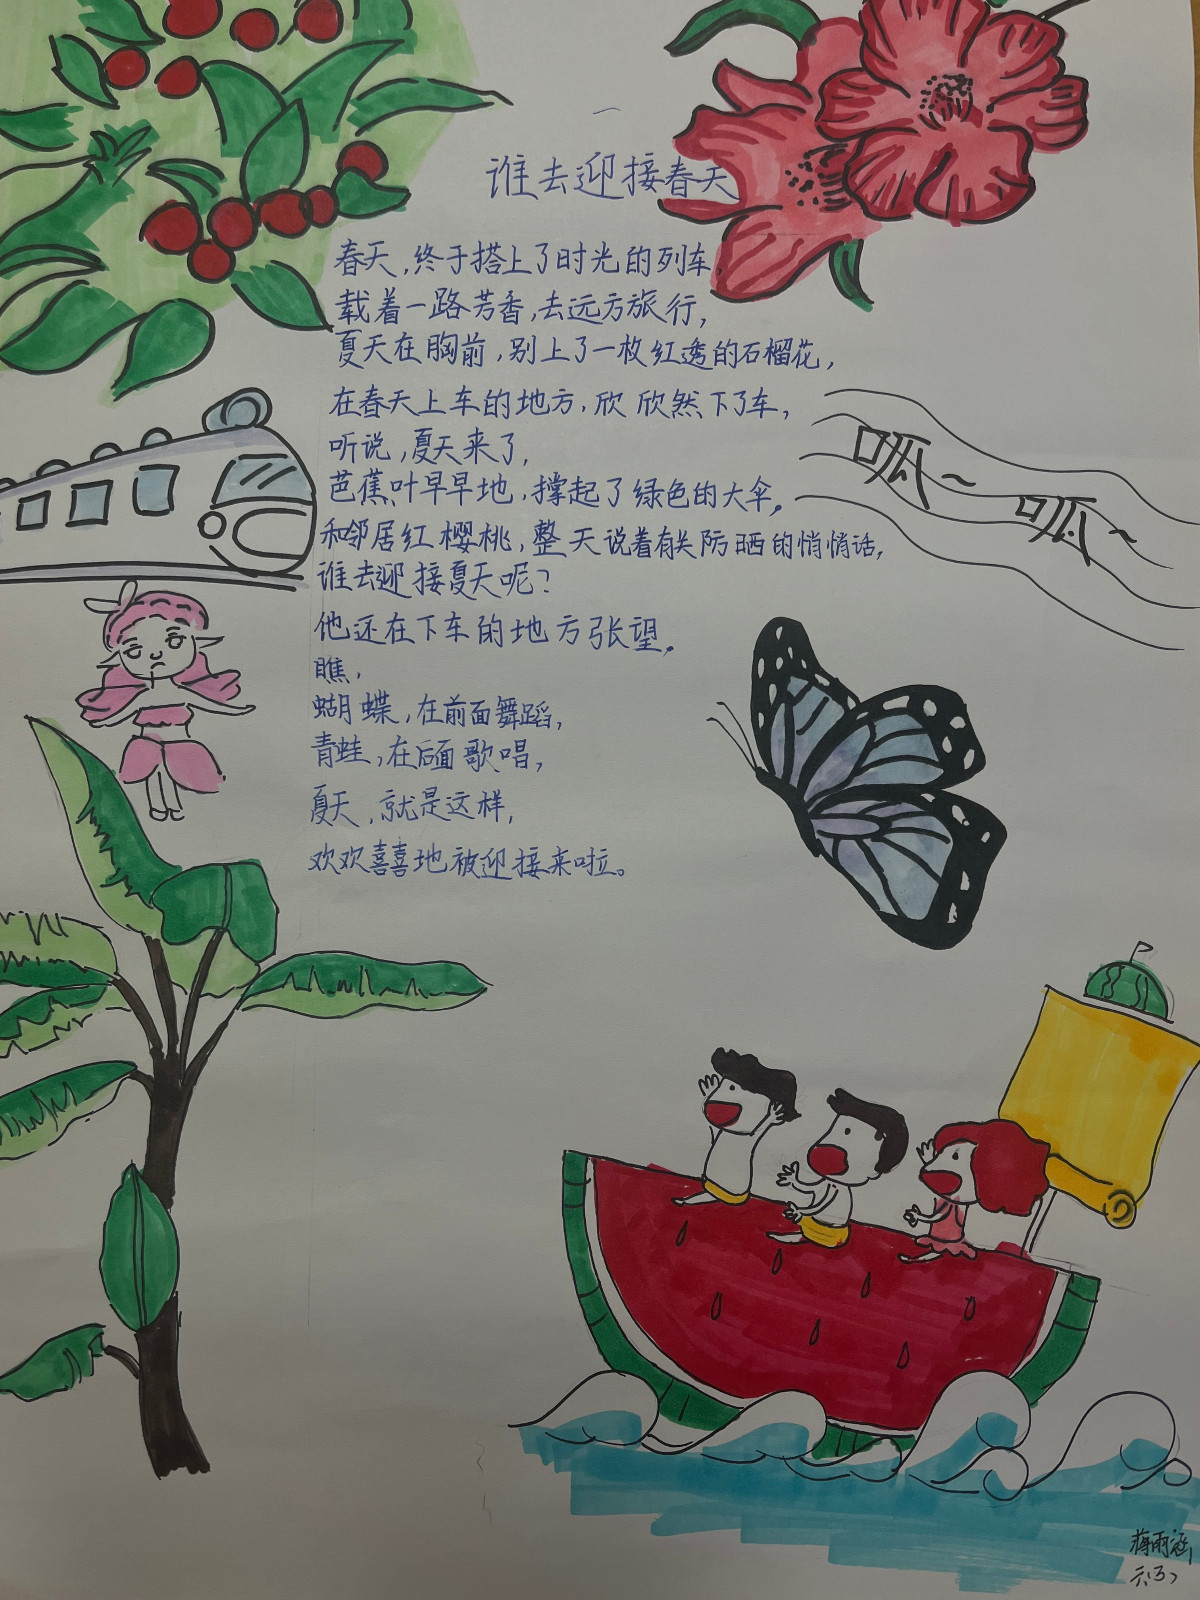 谁去迎接春天
春天,终于搭上了时光的列车,
载着一路芳香,去远方旅行,
夏天在胸前,别上了一枚红透的石榴花,
在春天上车的地方,欣欣然下了车,
听说,夏天来了,
芭蕉叶早早地,撑起了绿色的大伞,
和邻居红樱桃,整天说着有关防晒的悄悄话,
谁去迎接夏天呢?
他还在下车的地方张望。
瞧,
蝴蝶,在前面舞蹈,
青蛙,在后面歌唱,
夏天,就是这样,
欢欢喜喜地被迎接来啦。
呱~
呱~
蒋雨涵